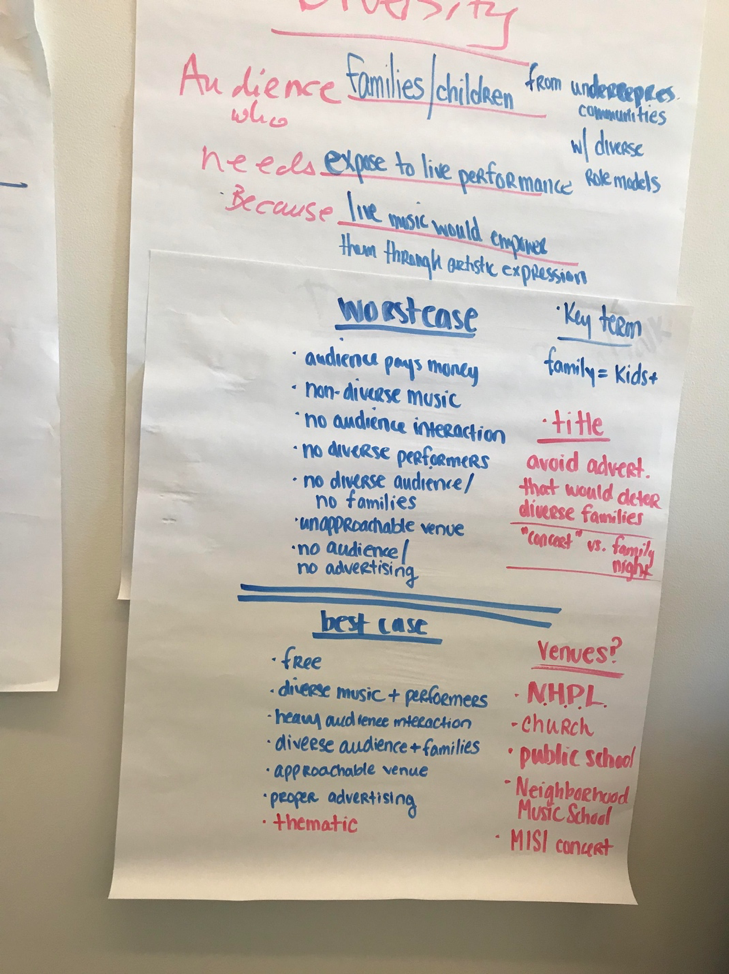 Diversity
Audience families/children from underrepres.
who communities
w/ diverse
needs expose to live performance Role models
· Because live music would empower
them through artistic expression
worst case
· audience pays money
· non-diverse music
· no audience interaction
· no diverse performers
· no diverse audience/
no families
· unapproachable venue
· no audience/
no advertising
· Key term
family = Kids+
· title
avoid advert.
that would deter
diverse families
"concert" vs. family
night
best case
· free
· diverse music + performers
· heavy audience interaction
· diverse audience + families
· approachable venue
· proper advertising
· thematic
Venues?
· N.H.P.L.
· church
· public school
· Neighborhood
Music School
· MISI concert